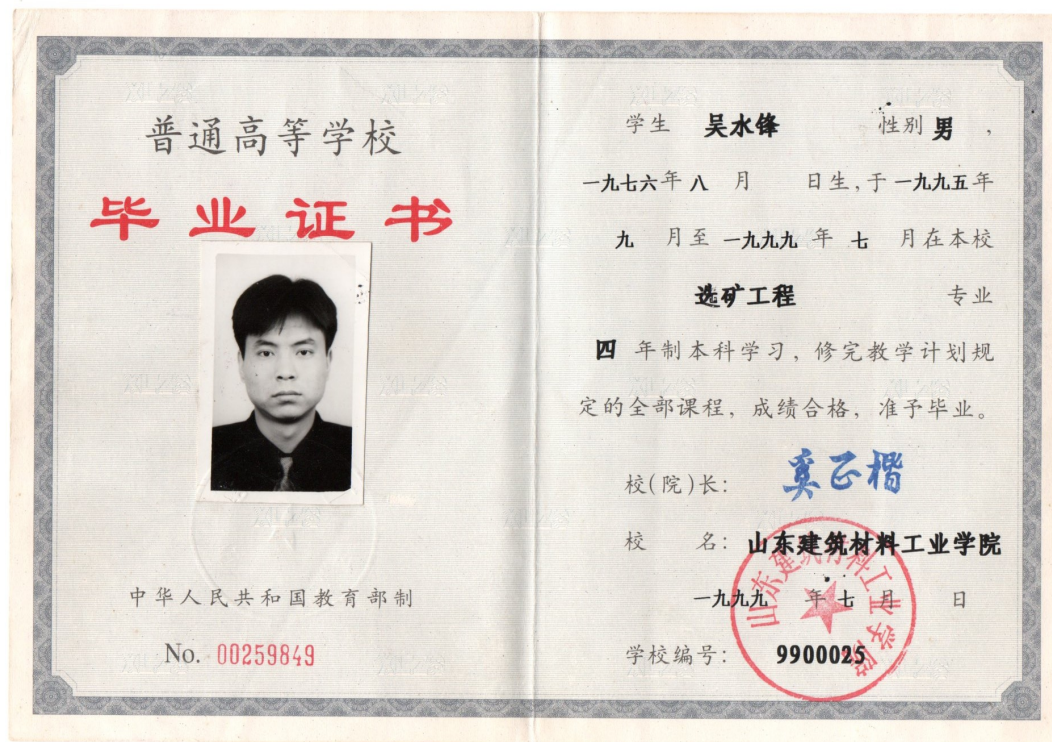 普通高等学校
毕业证书
中华人民共和国教育部制
No. 00259849
学生 吴水锋 性别 男,
一九七六年 八 月 日生,于 一九九五年
九 月至 一九九九 年 七 月在本校
选矿工程 专业
四 年制本科学习,修完教学计划规
定的全部课程,成绩合格,准予毕业。
校(院)长: 奚正楷
校 名: 山东建筑材料工业学院
一九九九 年 七 月 日
学校编号: 9900025
山东建筑材料工业学院